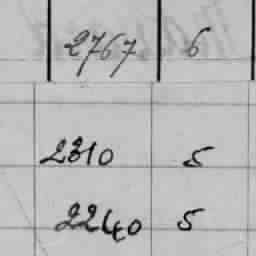 2767 6
2310 5
2240 5